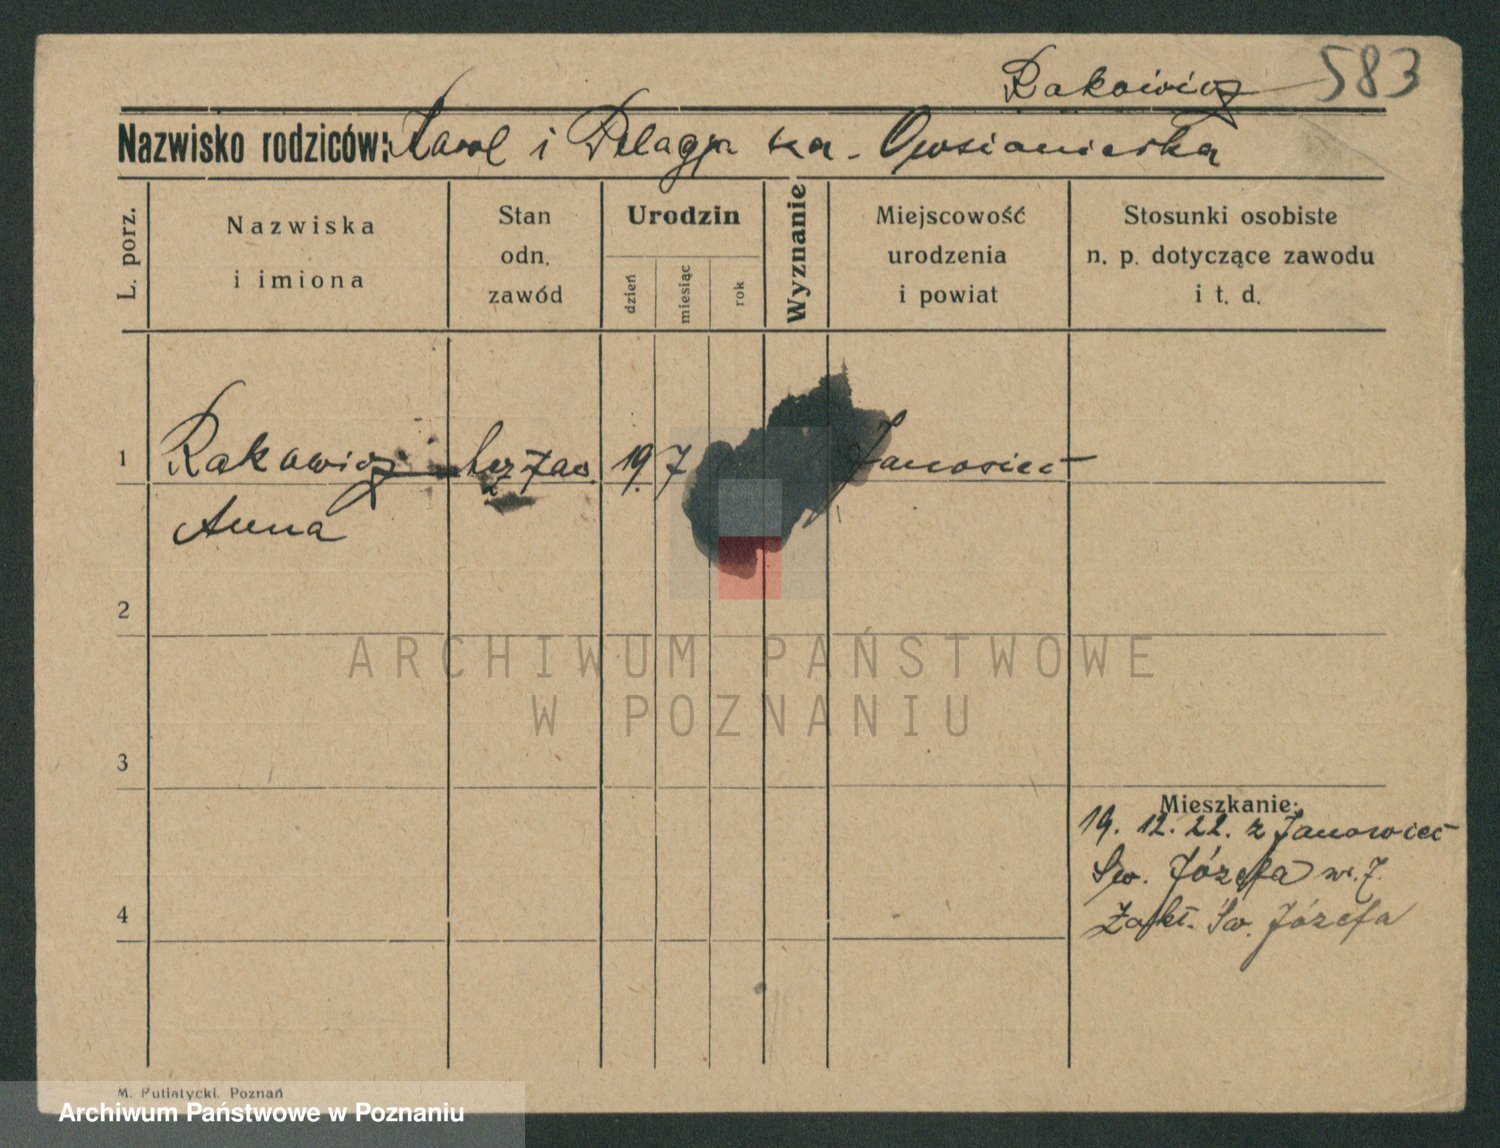 Rakowicz 583
Nazwisko rodziców: Karol i Pelagja z d. Owsianieska
L. porz.
Nazwiska
i imiona
Stan
odn.
zawód
Urodzin
dzień
miesiąc
rok
Wyznanie
Miejscowość
urodzenia
i powiat
Stosunki osobiste
n. p. dotyczące zawodu
i t. d.
1 Rakowicz bez zaw. 19. 7 Janowiec
Anna
2
ARCHIWUM PAŃSTWOWE
W POZNANIU
3
Mieszkanie:
19. 12. 22. z Janowiec
Św. Józefa nr. 7.
4 Zakł. Św. Józefa
M. Putiatycki, Poznań
Archiwum Państwowe w Poznaniu